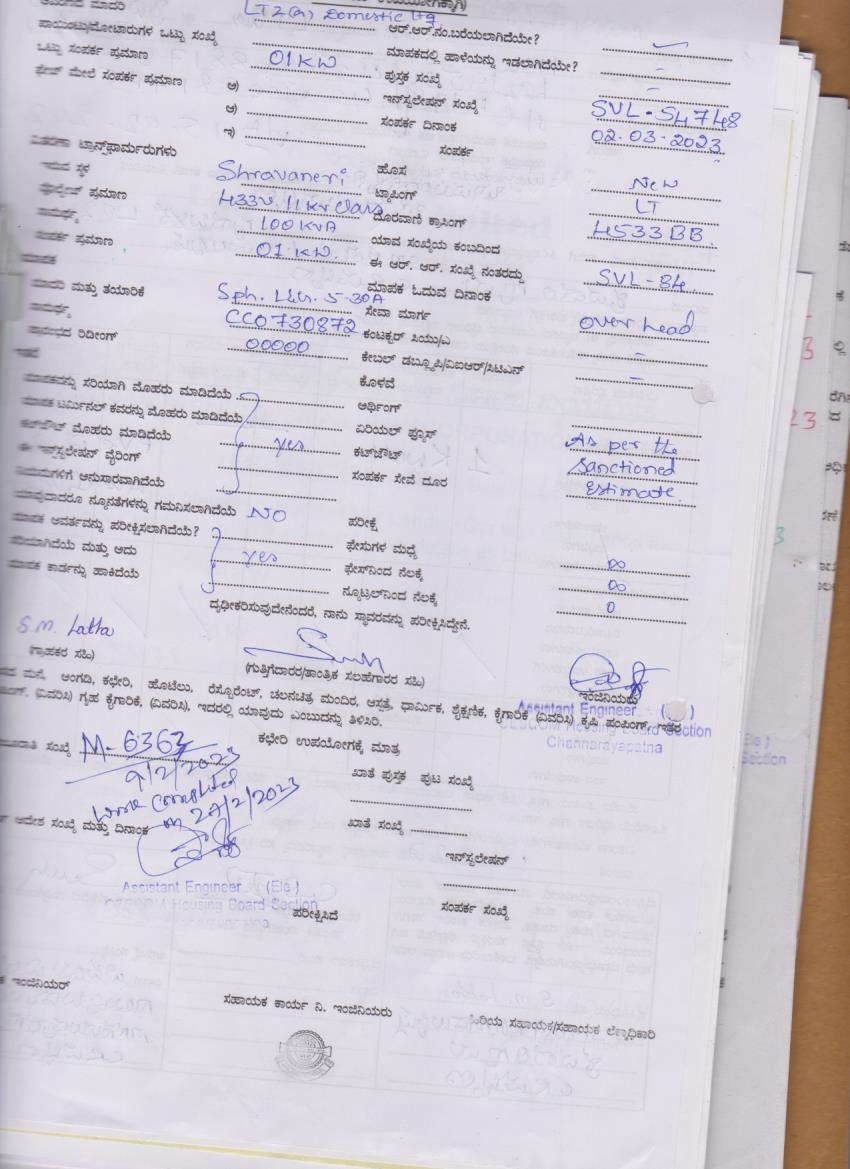 ಉಪಯೋಗಕ್ಕಾಗಿ)
ಮಾದರಿ LT2(a) Domestic ltg ಆರ್.ಆರ್.ನಂ.ಬರೆಯಲಾಗಿದೆಯೇ?
ಪಾಯಿಂಟು/ಮೋಟಾರುಗಳ ಒಟ್ಟು ಸಂಖ್ಯೆ ಮಾಪಕದಲ್ಲಿ ಹಾಳೆಯನ್ನು ಇಡಲಾಗಿದೆಯೇ? -
ಒಟ್ಟು ಸಂಪರ್ಕ ಪ್ರಮಾಣ 01 KW ಪುಸ್ತಕ ಸಂಖ್ಯೆ -
ಫೇಸ್ ಮೇಲೆ ಸಂಪರ್ಕ ಪ್ರಮಾಣ ಅ) ಇನ್‌ಸ್ಟಲೇಷನ್ ಸಂಖ್ಯೆ SVL-S4748
ಆ) ಸಂಪರ್ಕ ದಿನಾಂಕ 02.03-2023
ಇ) ಸಂಪರ್ಕ
ವಿತರಣಾ ಟ್ರಾನ್ಸ್‌ಫಾರ್ಮರುಗಳು
ಇರುವ ಸ್ಥಳ Shravaneri ಹೊಸ New
ವೋಲ್ಟೇಜ್ ಪ್ರಮಾಣ 433v. 11 Kv class ಟ್ಯಾಪಿಂಗ್ LT
ಸಾಮರ್ಥ್ಯ 100 KVA ದೂರವಾಣಿ ಕ್ರಾಸಿಂಗ್
ಸಂಪರ್ಕ ಪ್ರಮಾಣ 01 KW. ಯಾವ ಸಂಖ್ಯೆಯ ಕಂಬದಿಂದ 4533 BB.
ಮಾಪಕ ಈ ಆರ್. ಆರ್. ಸಂಖ್ಯೆ ನಂತರದ್ದು SVL-84
ಮಾಪಕ ಓದುವ ದಿನಾಂಕ
ಮಾದರಿ ಮತ್ತು ತಯಾರಿಕೆ Sph. L&tr. 5-30A ಸೇವಾ ಮಾರ್ಗ over head
ಸಾಮರ್ಥ್ಯ CCO730872 ಕಂಟಕ್ಟರ್ ಸಿಯು/ಎ -
ಪ್ರಾರಂಭದ ರಿಡೀಂಗ್ 00000 ಕೇಬಲ್ ಡಬ್ಲ್ಯೂಪಿ/ವಿಐಆರ್/ಸಿಟಿಎಸ್ -
ಇತರೆ ಕೊಳವೆ
ಮಾಪಕವನ್ನು ಸರಿಯಾಗಿ ಮೊಹರು ಮಾಡಿದೆಯೆ ಅರ್ಥಿಂಗ್
ಮಾಪಕ ಟರ್ಮಿನಲ್ ಕವರನ್ನು ಮೊಹರು ಮಾಡಿದೆಯೆ ಏರಿಯಲ್ ಫ್ಯೂಸ್
ಕಟ್‌ಔಟ್ ಮೊಹರು ಮಾಡಿದೆಯೆ yes ಕಟ್‌ಔಟ್ As per the
ಈ ಇನ್‌ಸ್ಟಲೇಷನ್ ವೈರಿಂಗ್ ಸಂಪರ್ಕ ಸೇವೆ ದೂರ Sanctioned
ನಿಯಮಗಳಿಗೆ ಅನುಸಾರವಾಗಿದೆಯೆ Estimate.
ಯಾವುದಾದರೂ ನ್ಯೂನತೆಗಳನ್ನು ಗಮನಿಸಲಾಗಿದೆಯೆ NO ಪರೀಕ್ಷೆ
ಮಾಪಕ ಆವರ್ತವನ್ನು ಪರೀಕ್ಷಿಸಲಾಗಿದೆಯೆ? ಫೇಸುಗಳ ಮಧ್ಯೆ ∞
ಸರಿಯಾಗಿದೆಯೆ ಮತ್ತು ಅದು yes ಫೇಸ್‌ನಿಂದ ನೆಲಕ್ಕೆ ∞
ಮಾಪಕ ಕಾರ್ಡನ್ನು ಹಾಕಿದೆಯೆ ನ್ಯೂಟ್ರಲ್‌ನಿಂದ ನೆಲಕ್ಕೆ 0
ದೃಢೀಕರಿಸುವುದೇನೆಂದರೆ, ನಾನು ಸ್ಥಾವರವನ್ನು ಪರೀಕ್ಷಿಸಿದ್ದೇನೆ.
S.M. Latha
(ಗ್ರಾಹಕರ ಸಹಿ) (ಗುತ್ತಿಗೆದಾರರ/ತಾಂತ್ರಿಕ ಸಲಹೆಗಾರರ ಸಹಿ) ಇಂಜಿನಿಯರು
Assistant Engineer
Housing Board Section
Channarayapatna
ಮನೆ, ಅಂಗಡಿ, ಕಛೇರಿ, ಹೊಟೆಲು, ರೆಸ್ಟೋರೆಂಟ್, ಚಲನಚಿತ್ರ ಮಂದಿರ, ಆಸ್ಪತ್ರೆ, ಧಾರ್ಮಿಕ, ಶೈಕ್ಷಣಿಕ, ಕೈಗಾರಿಕೆ (ವಿವರಿಸಿ) ಕೃಷಿ ಪಂಪಿಂಗ್, ಇತರ
(ವಿವರಿಸಿ) ಗೃಹ ಕೈಗಾರಿಕೆ, (ವಿವರಿಸಿ), ಇದರಲ್ಲಿ ಯಾವುದು ಎಂಬುದನ್ನು ತಿಳಿಸಿರಿ.
ಕಛೇರಿ ಉಪಯೋಗಕ್ಕೆ ಮಾತ್ರ
ಸಂಖ್ಯೆ M-6363
9/2/2023
ಖಾತೆ ಪುಸ್ತಕ ಪುಟ ಸಂಖ್ಯೆ
work completed
on 27/2/2023
ಆದೇಶ ಸಂಖ್ಯೆ ಮತ್ತು ದಿನಾಂಕ ಖಾತೆ ಸಂಖ್ಯೆ
ಇನ್‌ಸ್ಟಲೇಷನ್
Assistant Engineer (Ele)
Housing Board Section
ಪರೀಕ್ಷಿಸಿದೆ ಸಂಪರ್ಕ ಸಂಖ್ಯೆ
ಇಂಜಿನಿಯರ್ ಸಹಾಯಕ ಕಾರ್ಯ ನಿ. ಇಂಜಿನಿಯರು ಹಿರಿಯ ಸಹಾಯಕ/ಸಹಾಯಕ ಲೆಕ್ಕಾಧಿಕಾರಿ